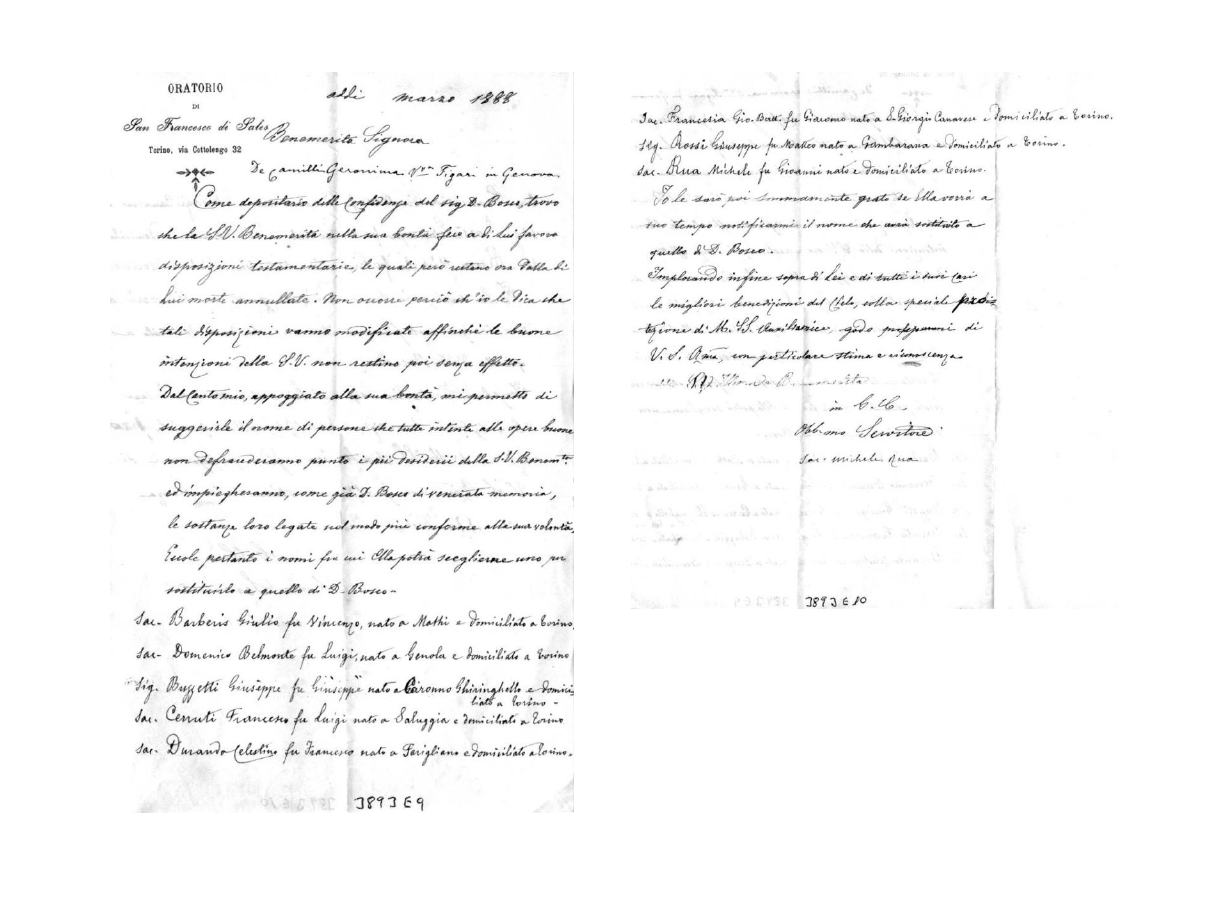 ORATORIO
DI
San Francesco di Sales
Torino, via Cottolengo 32
addì marzo 1888
Benemerita Signora
De Camilli Geronima V.va Figari in Genova
Come depositario delle Confidenze del sig. D. Bosco, trovo
che la S.V. Benemerita nella sua bontà fece a di Lui favore
disposizioni testamentarie, le quali però restano ora dalla di
Lui morte annullate. Non occorre perciò ch'io le dica che
tali disposizioni vanno modificate affinchè le buone
intenzioni della S.V. non restino poi senza effetto.
Dal Canto mio, appoggiato alla sua bontà, mi permetto di
suggerirle il nome di persone che tutte intente alle opere buone
non defrauderanno punto i pii desiderii della S.V. Benem.ta
ed impiegheranno, come già D. Bosco di venerata memoria,
le sostanze loro legate nel modo più conforme alla sua volontà.
Eccole pertanto i nomi fra cui Ella potrà sceglierne uno per
sostituirlo a quello di D. Bosco-
Sac- Barberis Giulio fu Vincenzo, nato a Mathi e domiciliato a Torino
Sac- Domenico Belmonte fu Luigi, nato a Genola e domiciliato a Torino
Sig- Buzzetti Giuseppe fu Giuseppe nato a Caronno Ghiringhello e domici=
liato a Torino-
Sac- Cerruti Francesco fu Luigi nato a Saluggia e domiciliato a Torino
Sac- Durando Celestino fu Francesco nato a Farigliano e domiciliato a Torino.
3893 E 9
Sac- Francesia Gio. Batt. fu Giacomo nato a S. Giorgio Canavese e domiciliato a Torino.
Sig. Rossi Giuseppe fu Matteo nato a Gambarana e domiciliato a Torino.
Sac- Rua Michele fu Giovanni nato e domiciliato a Torino.
Io le sarò poi sommamente grato se Ella vorrà a
suo tempo notificarmi il nome che avrà sostituito a
quello di D. Bosco.
Implorando infine sopra di Lei e di tutti i suoi Cari
le migliori benedizioni del Cielo, colla speciale prote=
tezione di M. SS. Ausiliatrice, godo professarmi di
V. S. Ill.ma, con particolare stima e riconoscenza
in G. C.
Obbl.mo Servitore
Sac. Michele Rua
3893 E 10